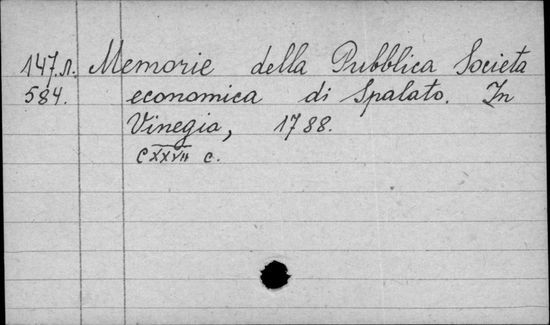 147.л. Memorie della Pubblica Societa
584. economica di Spalato. In
Vinegia, 1788.
CXXVII c.